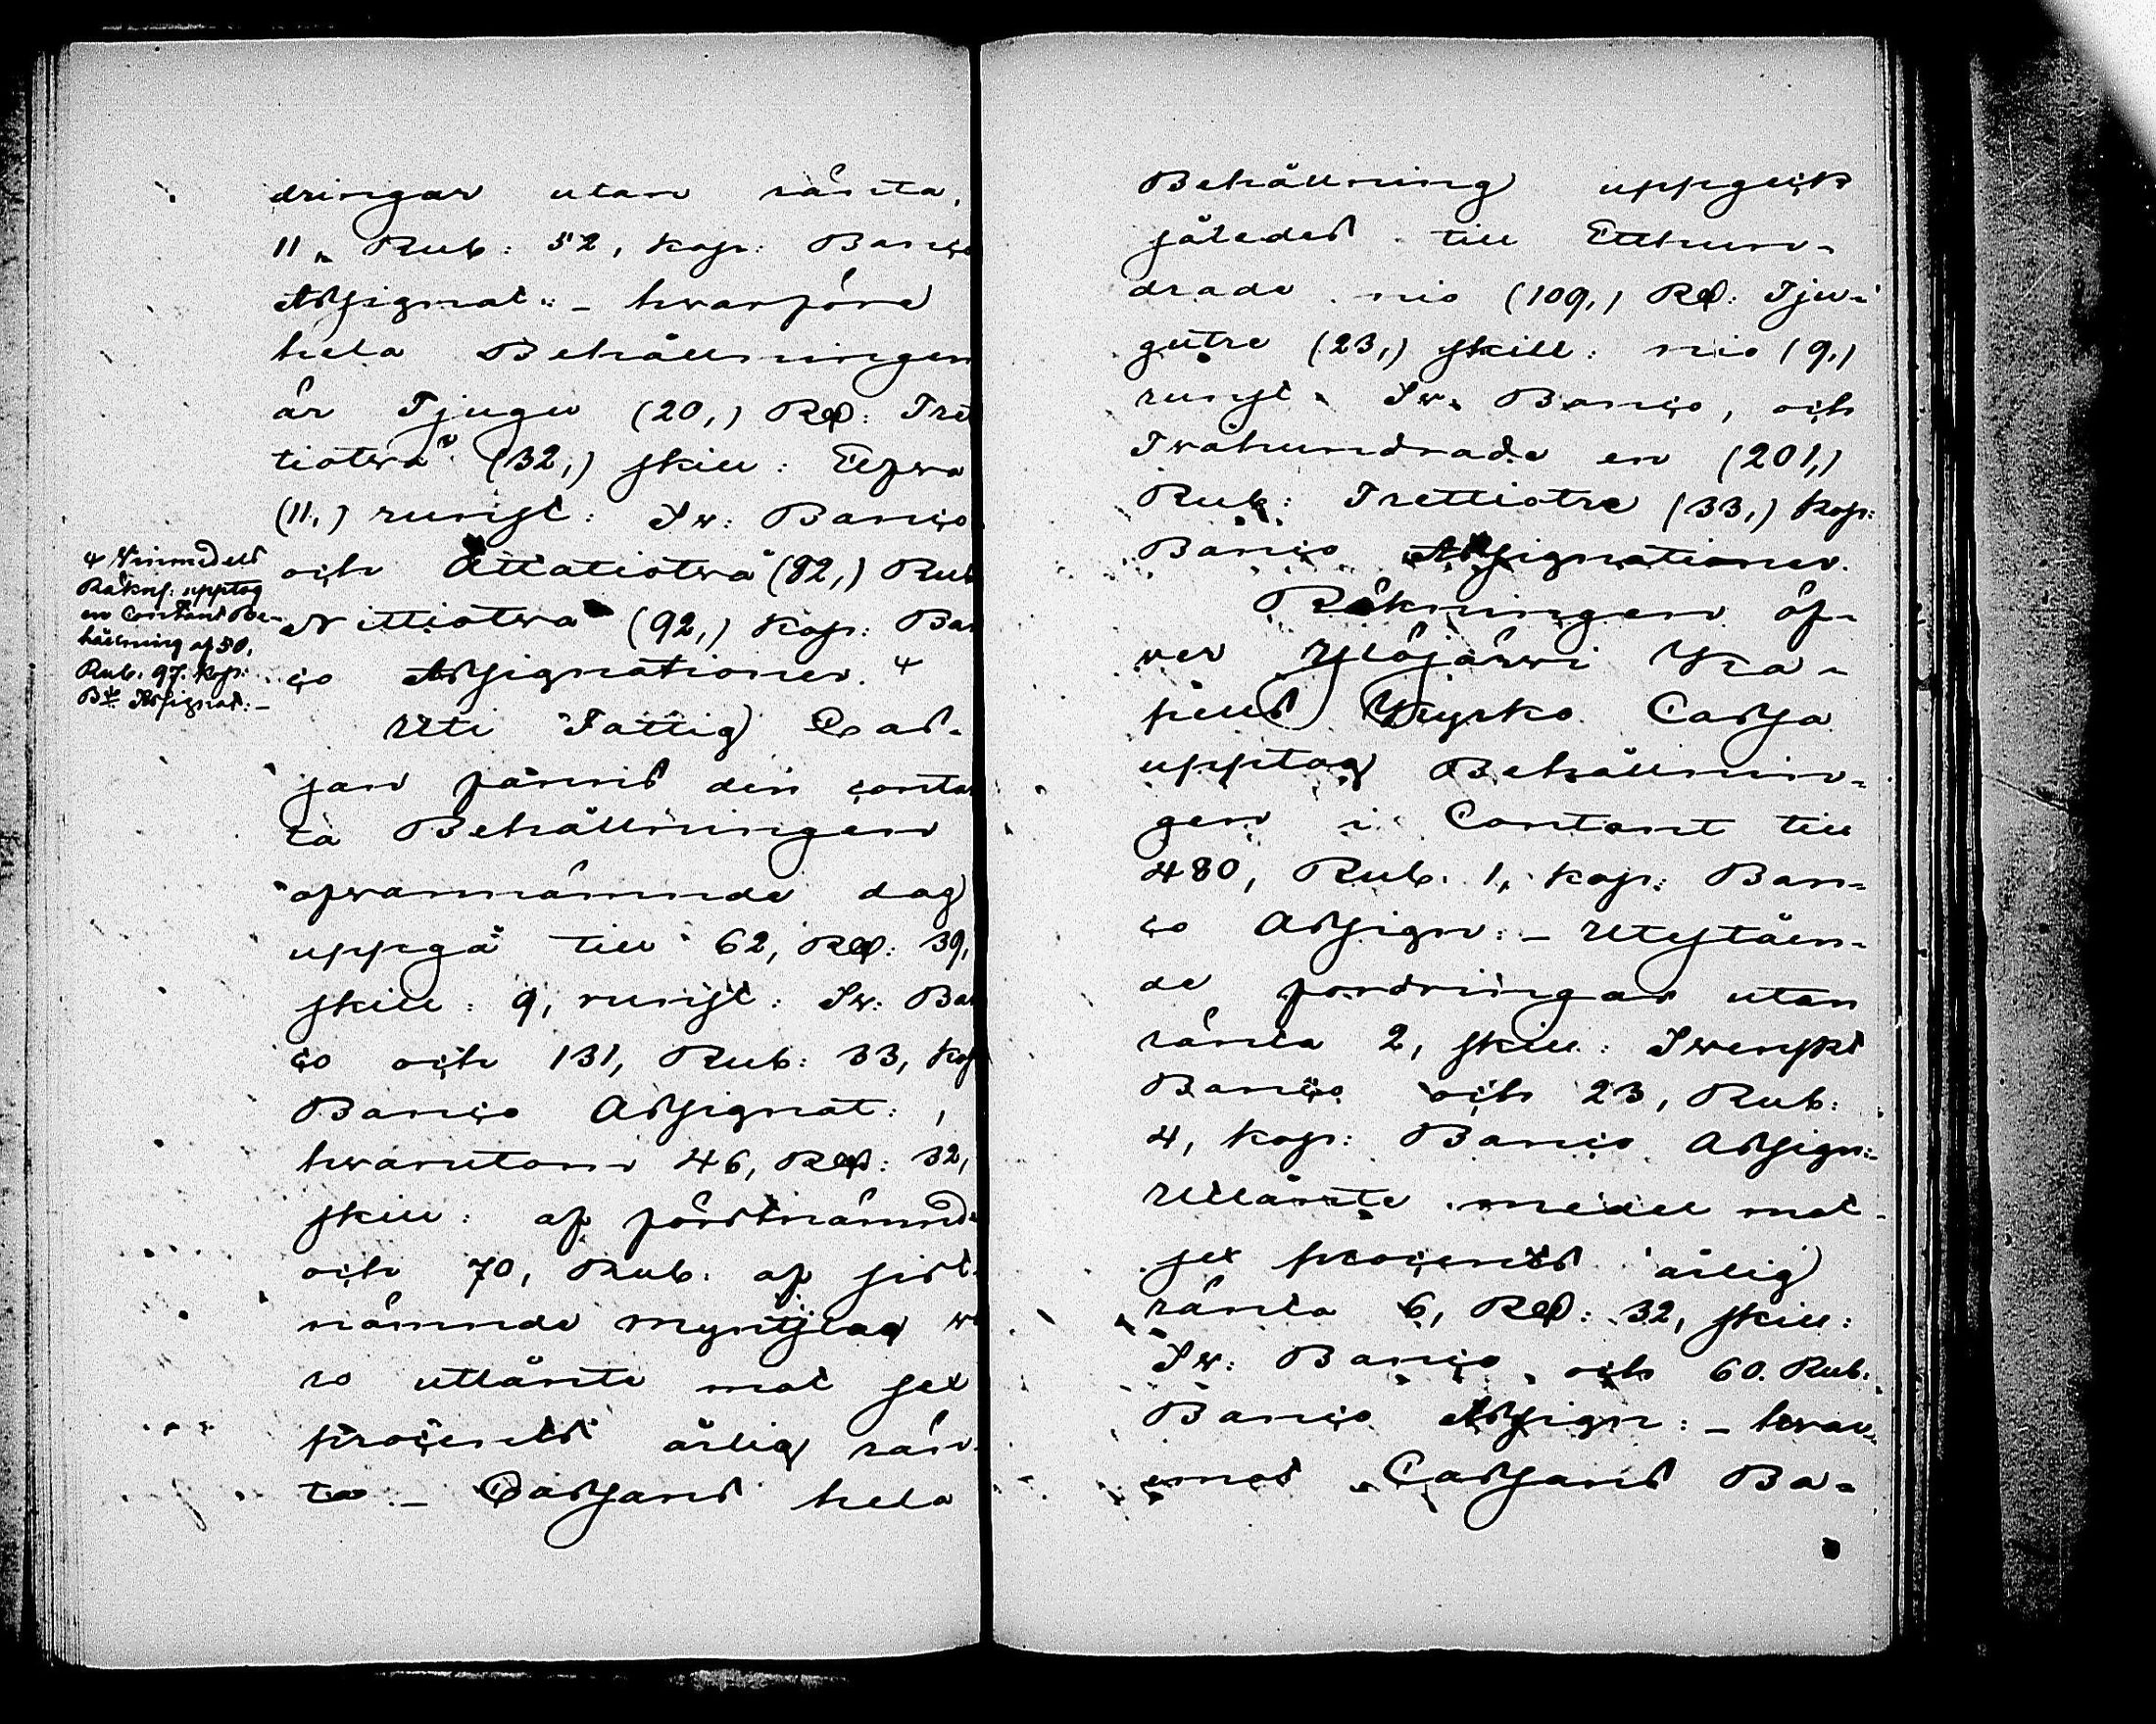 dringar utan ränta,
11, Rub: 52, kop: Banco
Assignat: - hvarföre
hela Behållningen
är Tjugu (20,) Rd: Tret
tiotvå (32,) skill: Elfva
(11,) runst: Sv: Banco
och Åttatiotvå (82,) Rub
Nittiotvå (92,) kop: Ban
co Assignationer. +
+ Vinmedels
Räkns: upptog
en Contant Be-
hållning af 50,
Rub. 97. kop:
Bco Assignat: -
Uti Fattig Cas-
san fanns den conta
ta Behållningen
ofvannämnde dag
uppgå till 62, Rd: 39,
skill: 9, runst: Sv: Ban
co och 131, Rub: 33, kop
Banco Assignat:,
hvarutom 46, Rd: 32,
skill: af förstnämnde
och 70, Rub. af sist-
nämnde myntslag vo
ro utlånte mot sex
procents årlig rän-
ta. - Cassans hela
Behållning uppgick
således till Etthun-
drade nio (109,) Rd: Tju-
gutre (23,) skill: nio (9,)
runst. Sv. Banco, och
Tvåhundrade en (201,)
Rub: Trettiotre (33,) kop:
Banco Assignationer.
Räkningen öf-
ver Ylöjärvi Ka-
pells Kyrko Cassa
upptog Behållnin-
gen i Contant till
480, Rub. 1, kop: Ban-
co Assign: - Uteståen-
de fordringar utan
ränta 2, skill: Svenskt
Banco och 23, Rub:
4, kop: Banco Assign:-
Utlånte medel mot
sex procents årlig
ränta 6, Rd: 32, skill:
Sv: Banco och 60. Rub:
Banco Assign: - hvar-
emot Cassans Ba-